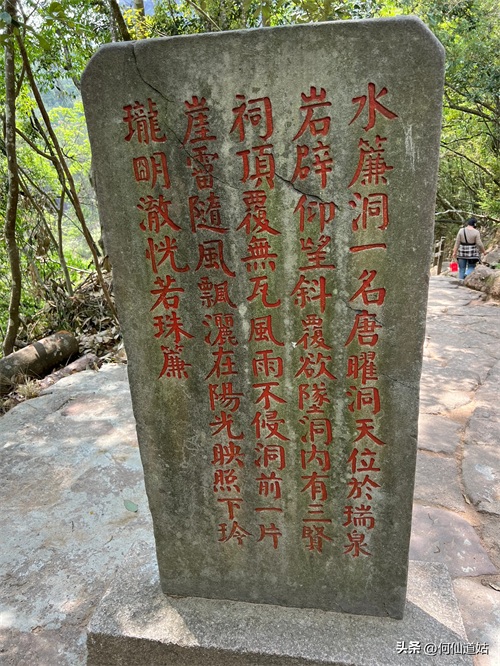 水簾洞一名唐曜洞天位於瑞泉
岩辟仰望斜覆欲墜洞内有三賢
祠頂覆無瓦風雨不侵洞前一片
崖霤隨風飄灑在陽光映照下玲
瓏明澈恍若珠簾
头条@何仙道姑